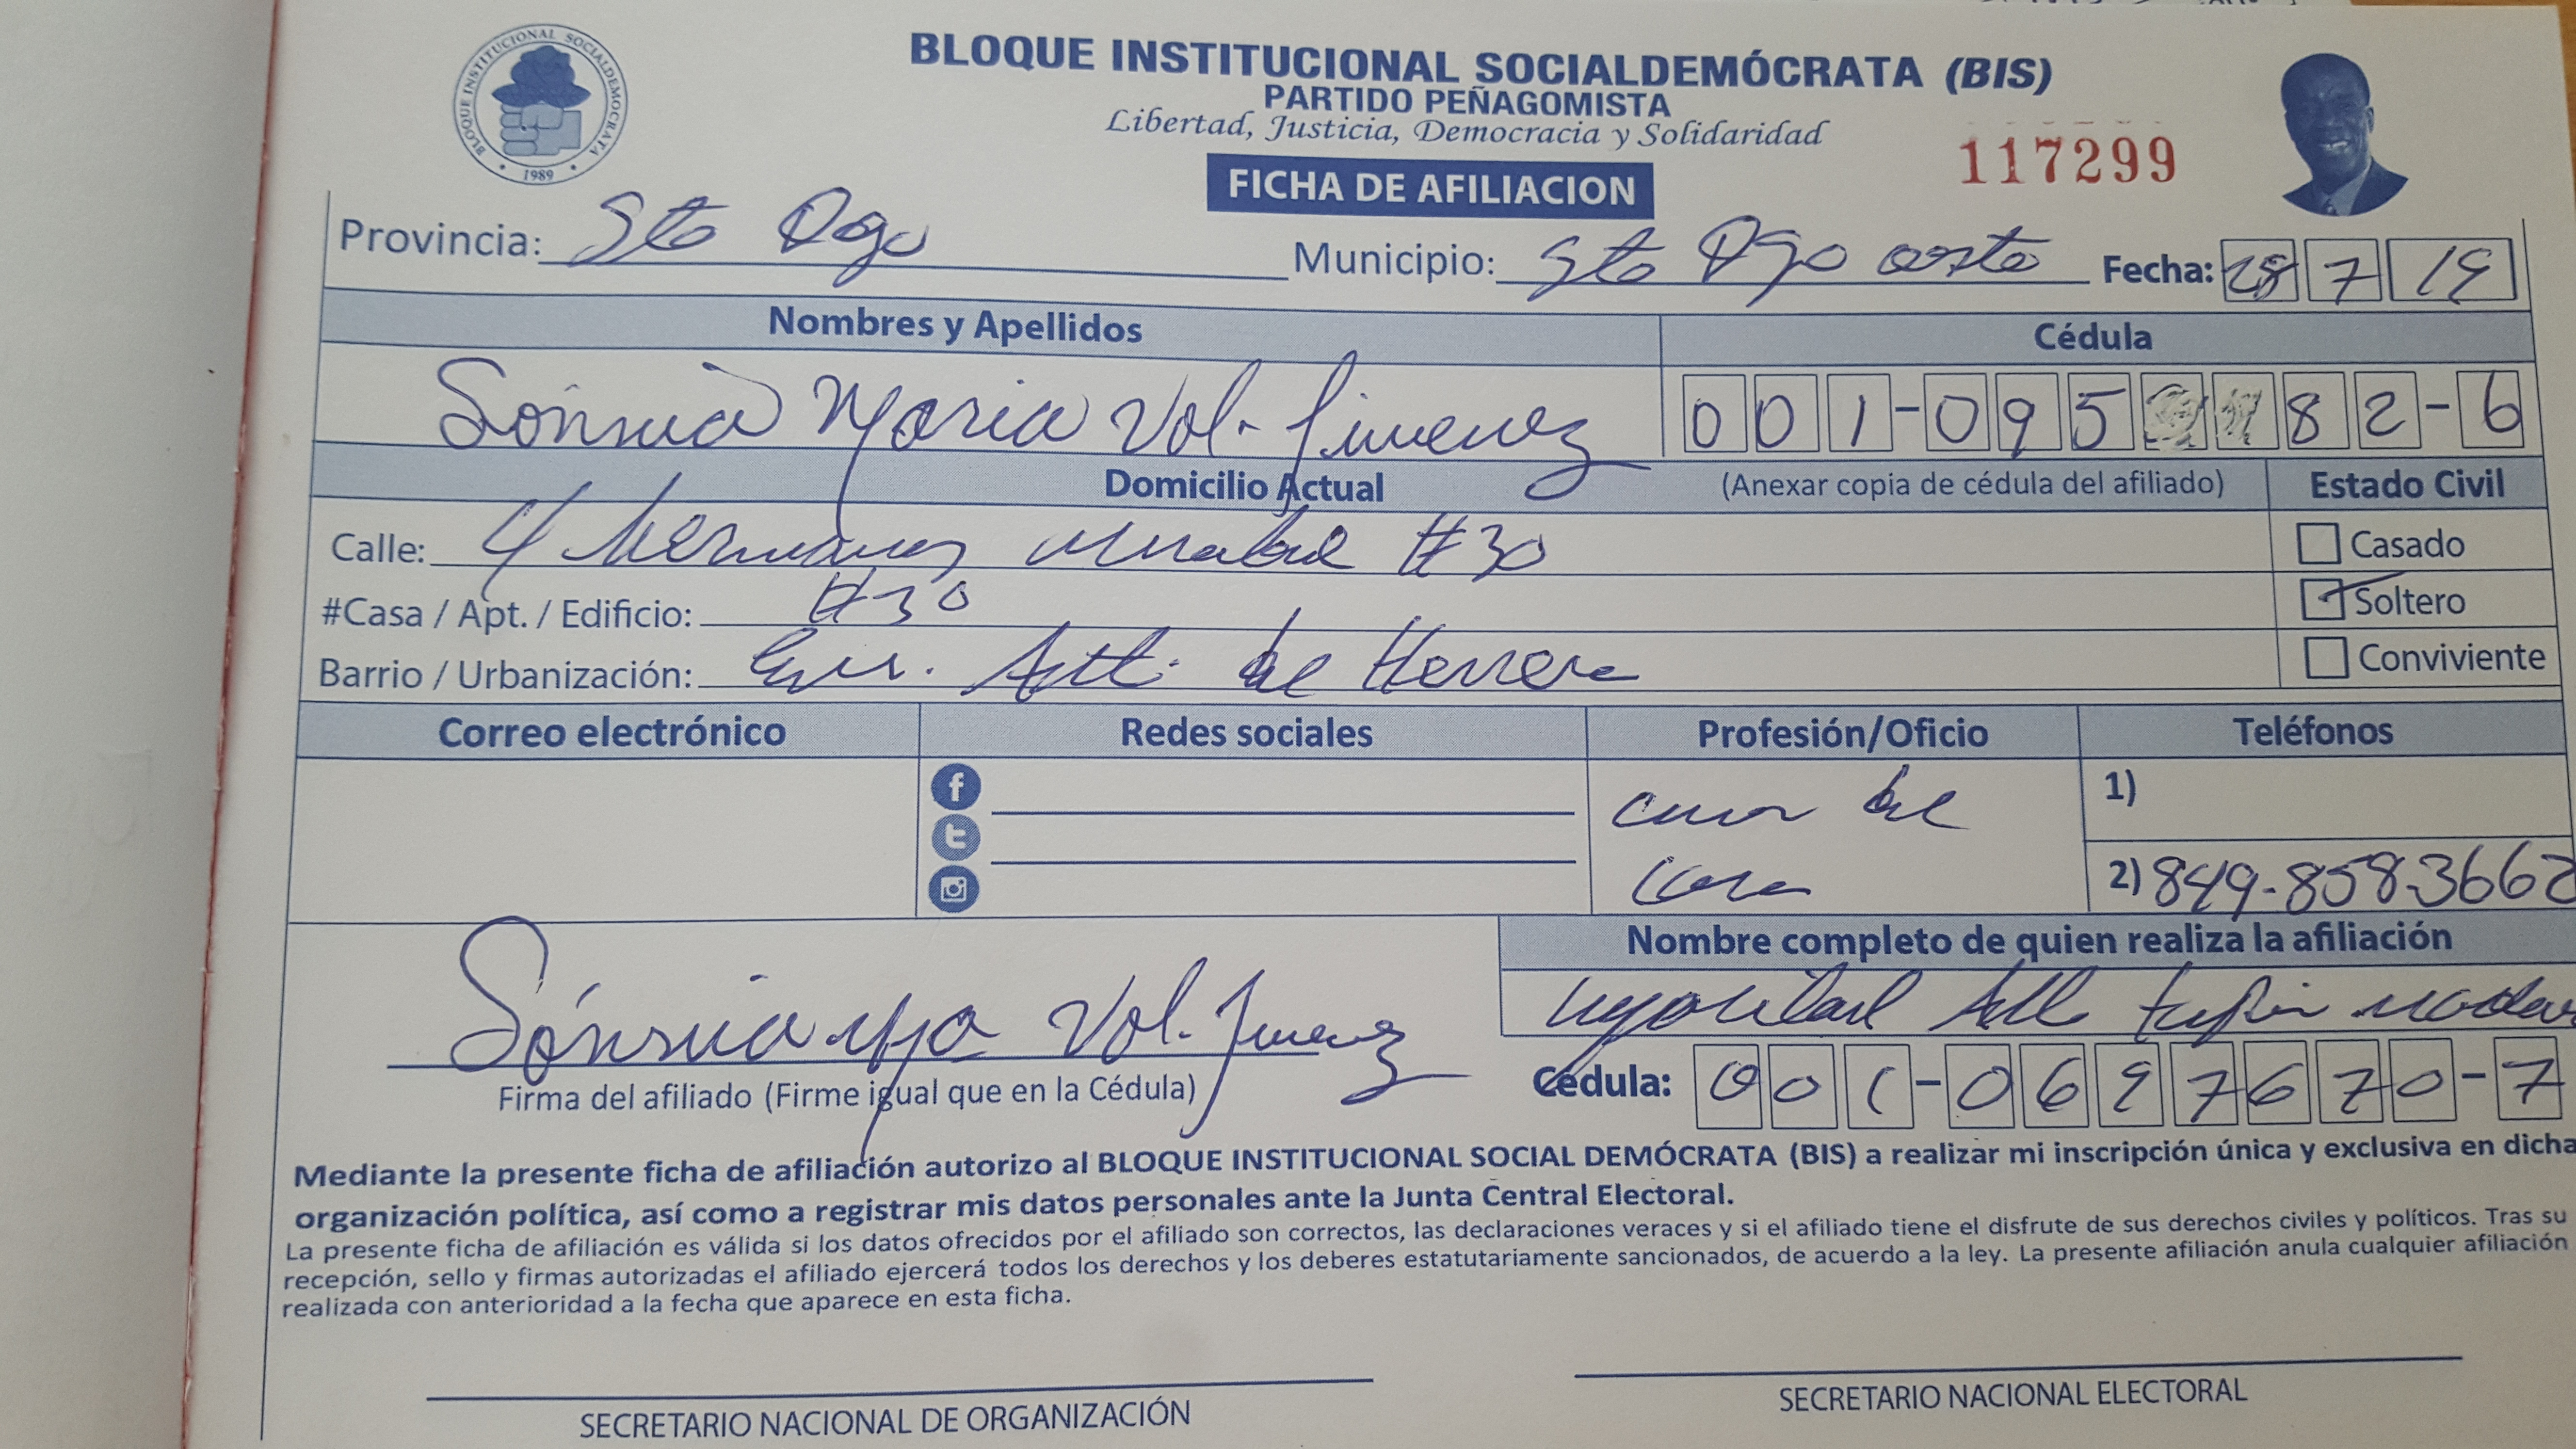 BLOQUE INSTITUCIONAL SOCIALDEMOCRATA
1989
BLOQUE INSTITUCIONAL SOCIALDEMÓCRATA (BIS)
PARTIDO PEÑAGOMISTA
Libertad, Justicia, Democracia y Solidaridad
117299
FICHA DE AFILIACION
Provincia: Sto Dgo Municipio: Sto Dgo oeste Fecha: 28 7 19
Nombres y Apellidos Cédula
Sónnia Maria Vol. Jimenez 001-095 82-6
Domicilio Actual (Anexar copia de cédula del afiliado) Estado Civil
Calle: 4 hermanas mirabal #30 Casado
#Casa / Apt. / Edificio: #30 Soltero
Barrio / Urbanización: de Herrera Conviviente
Correo electrónico Redes sociales Profesión/Oficio Teléfonos
1)
ama de
casa
2) 849-858-3662
Nombre completo de quien realiza la afiliación
Sónnia Ma Vol. Jimenez
Firma del afiliado (Firme igual que en la Cédula) Cédula: 001-0697670-7
Mediante la presente ficha de afiliación autorizo al BLOQUE INSTITUCIONAL SOCIAL DEMÓCRATA (BIS) a realizar mi inscripción única y exclusiva en dicha
organización política, así como a registrar mis datos personales ante la Junta Central Electoral.
La presente ficha de afiliación es válida si los datos ofrecidos por el afiliado son correctos, las declaraciones veraces y si el afiliado tiene el disfrute de sus derechos civiles y políticos. Tras su
recepción, sello y firmas autorizadas el afiliado ejercerá todos los derechos y los deberes estatutariamente sancionados, de acuerdo a la ley. La presente afiliación anula cualquier afiliación
realizada con anterioridad a la fecha que aparece en esta ficha.
SECRETARIO NACIONAL DE ORGANIZACIÓN SECRETARIO NACIONAL ELECTORAL